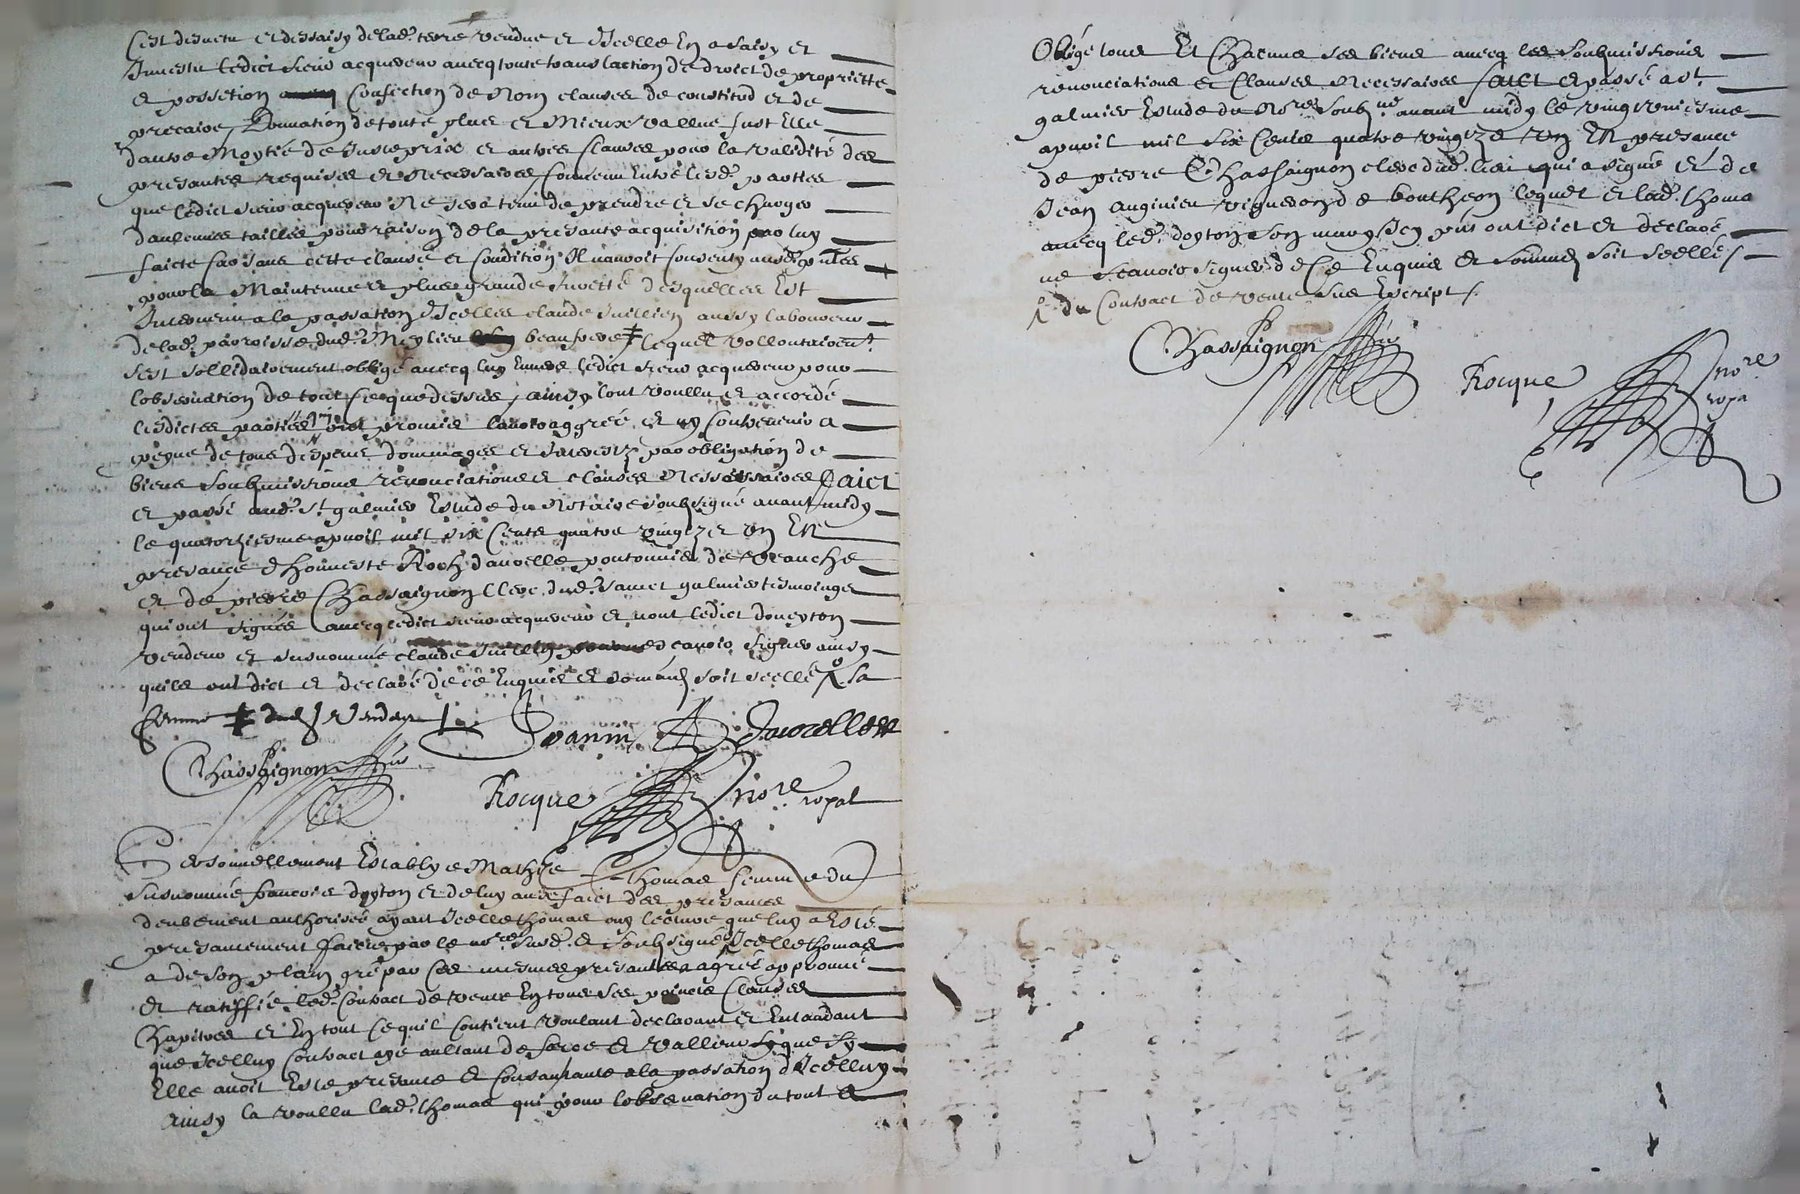 C'est desvetu et dessaisy de lad. terre vendue et Icelle En a saisy et
Investu ledict sieur acquereur avecq toute translaction de droict de propriette
et possetion confection de Nom clauses de constitud et de
precaire, Donnation de toute plus et Mieux vallue fust Elle
dautre Moytié de Juste prix et autres Clauses pour la validité des
presantes requises et Necessaires, Convenu Entre lesd. parties
que ledict sieur acquereur Ne sera tenu de prendre et se charger
daulcunes tailles pour raison de la presante acquisition par luy
faicte car sans cette clause et Condition Il nauroit consenty ausd. pntes
pour la Maintenue et plus grande surette desquelles Est
Intervenu a la passation d'Icelles claude Juillien aussy laboureur
de lad. parroisse dud. Meylieu beaufrere lequel vollontairemt
s'est sollidairement obligé avecq luy Envers ledict sieur acquereur pour
lobservation de tout Ce que dessus, ainsy lont voullu et accordé
lesdictes parties et promis lavoir aggreé et ny Contrevenir a
peyne de tous despens dommages et Interestz par obligation de
biens soubmissions renonciations et clauses Nessessaires faict
et passé aud. St galmier Estude du Notaire soubsigné avant midy
le quatorziesme apvril mil six Cents quatre vingtz et un En
presance d'honneste Roch davoelle pontonnier de Veauche
et de pierre Chassaignon Clerc dud. sainct galmier tesmoings
qui ont signés avecq ledict sieur acquereur et nont ledict doueyton
vendeur et susnommé claude Juillien scavoir signer ainsy
quils ont dict et declaré de ce Enquis et sommés soit scellé sa
femme dud. Vendeur
Jvanin Davoelle
Chassaignon
Rocque nore royal
Personnellement Establye Mathie Thomas femme du
susnommé francois doyton et de luy au faict des presances
deubement authorisée ayant Icelle thomas ouy lecture que luy a Esté
presantement faicte par le nore susd. et soubsigné Icelle thomas
a de son plain gré par ces mesmes presantes agréé approuvé
et ratiffié led. Contract de vente En tous ses points Clauses
Chapitres et En tout Ce quil Contient voulant declarant et Entandant
que Icelluy Contract aye aultant de force et vallieur que sy
Elle avoit Esté presante et Consantante a la passation d'Icelluy
ainsy la voullu lad. thomas qui pour lobservation du tout a
Obligé tous Et Chacuns ses biens avecq les soubmissions
renonciations et Clauses Necessaires faict et passé a St
galmier Estude du Nore soubné avant midy le vingt uniesme
apvril mil six Cents quatre vingtz et un En presance
de pierre Chassaignon clerc dud. lieu qui a signé et de
Jean auginieu vigneron de boutheon lequel et lad. thomas
avecq led. doyton son mary Icy pnt ont dict et declaré
ne scavoir signer de Ce Enquis et sommés soit scellé
du Contract de vente sus Escript
Chassaignon
Rocque nore
roya